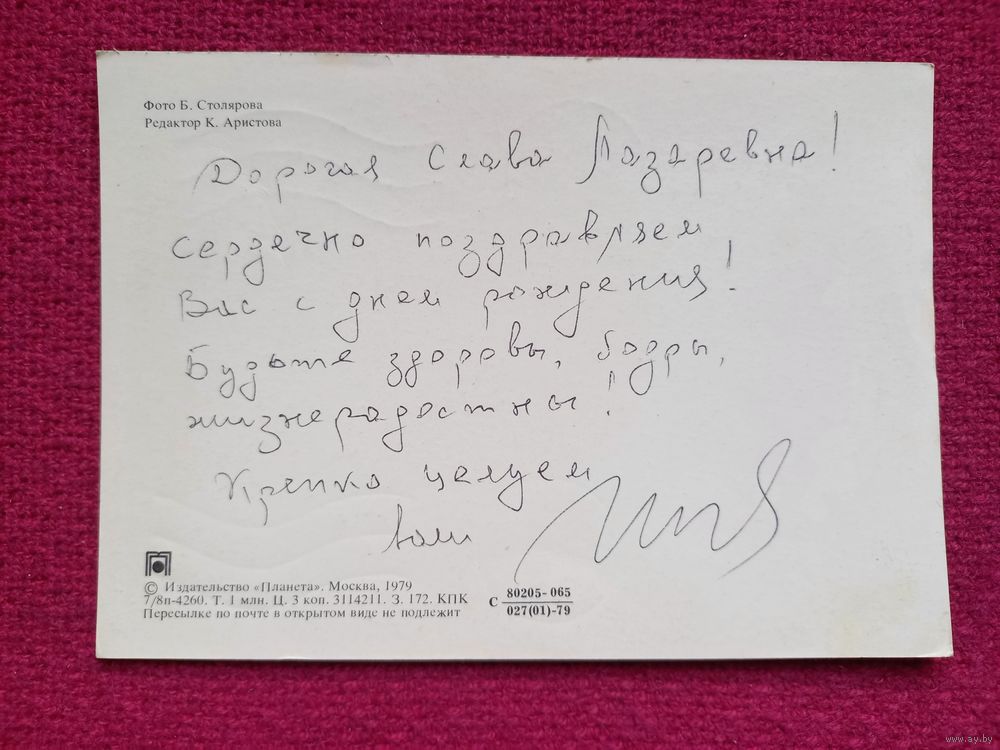 Фото Б. Столярова
Редактор К. Аристова
Дорогая Слава Лазаревна!
Сердечно поздравляем
Вас с днем рождения!
Будьте здоровы, бодры,
жизнерадостны!
Крепко целуем
Ваш
© Издательство «Планета». Москва, 1979
7/8п-4260. Т. 1 млн. Ц. 3 коп. 3114211. З. 172. КПК
Пересылке по почте в открытом виде не подлежит
С 80205-065
027(01)-79
www.ay.by